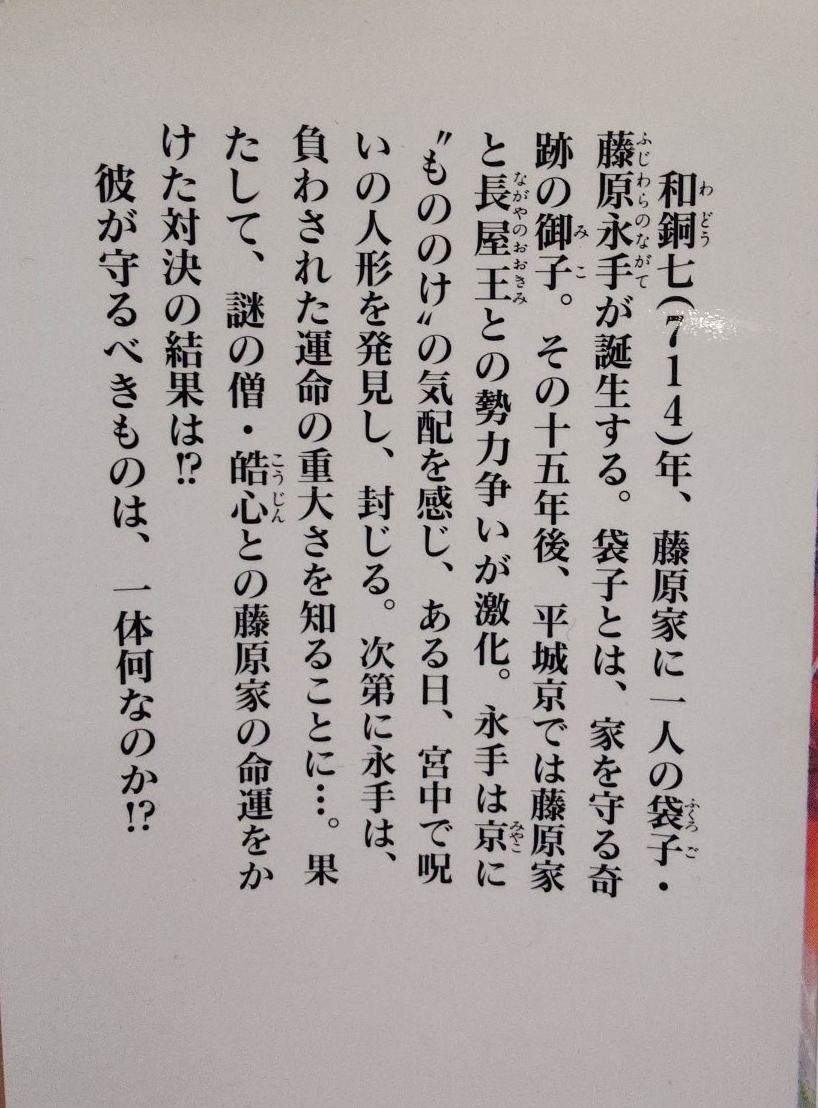 和銅七(714)年、藤原家に一人の袋子・
藤原永手が誕生する。袋子とは、家を守る奇
跡の御子。その十五年後、平城京では藤原家
と長屋王との勢力争いが激化。永手は京に
〝もののけ〟の気配を感じ、ある日、宮中で呪
いの人形を発見し、封じる。次第に永手は、
負わされた運命の重大さを知ることに…。果
たして、謎の僧・皓心との藤原家の命運をか
けた対決の結果は!?
彼が守るべきものは、一体何なのか!?